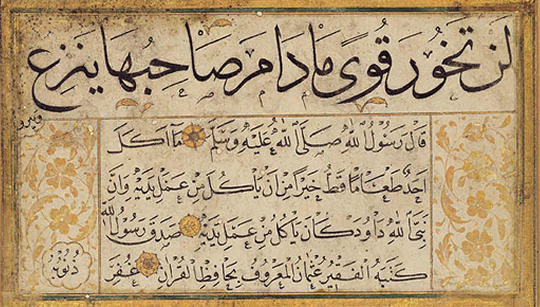 لن تخور قوى ما دام صاحبها ينزع
وينزو
قال رسول الله صلى الله عليه وسلم ما اكل
احد طعاما قط خيرا من ان يأكل من عمل يديه وان
نبي الله داود كان يأكل من عمل يديه صدق رسول الله
كتبه الفقير عثمان المعروف بحافظ القرآن غفر
ذنوبه